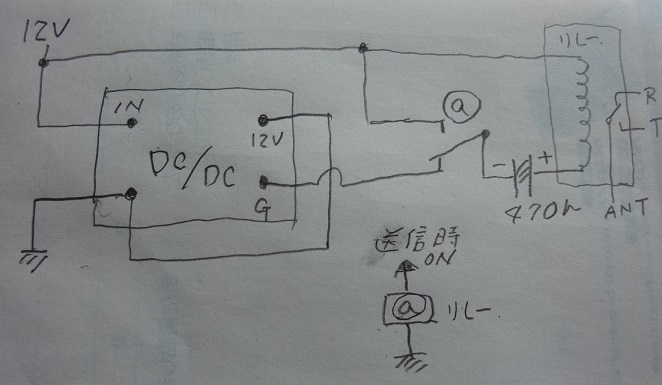 12V
リレー
IN
ⓐ
R
12V
T
DC/DC
- +
G
470μ
ANT
送信時
ON
ⓐ リレー